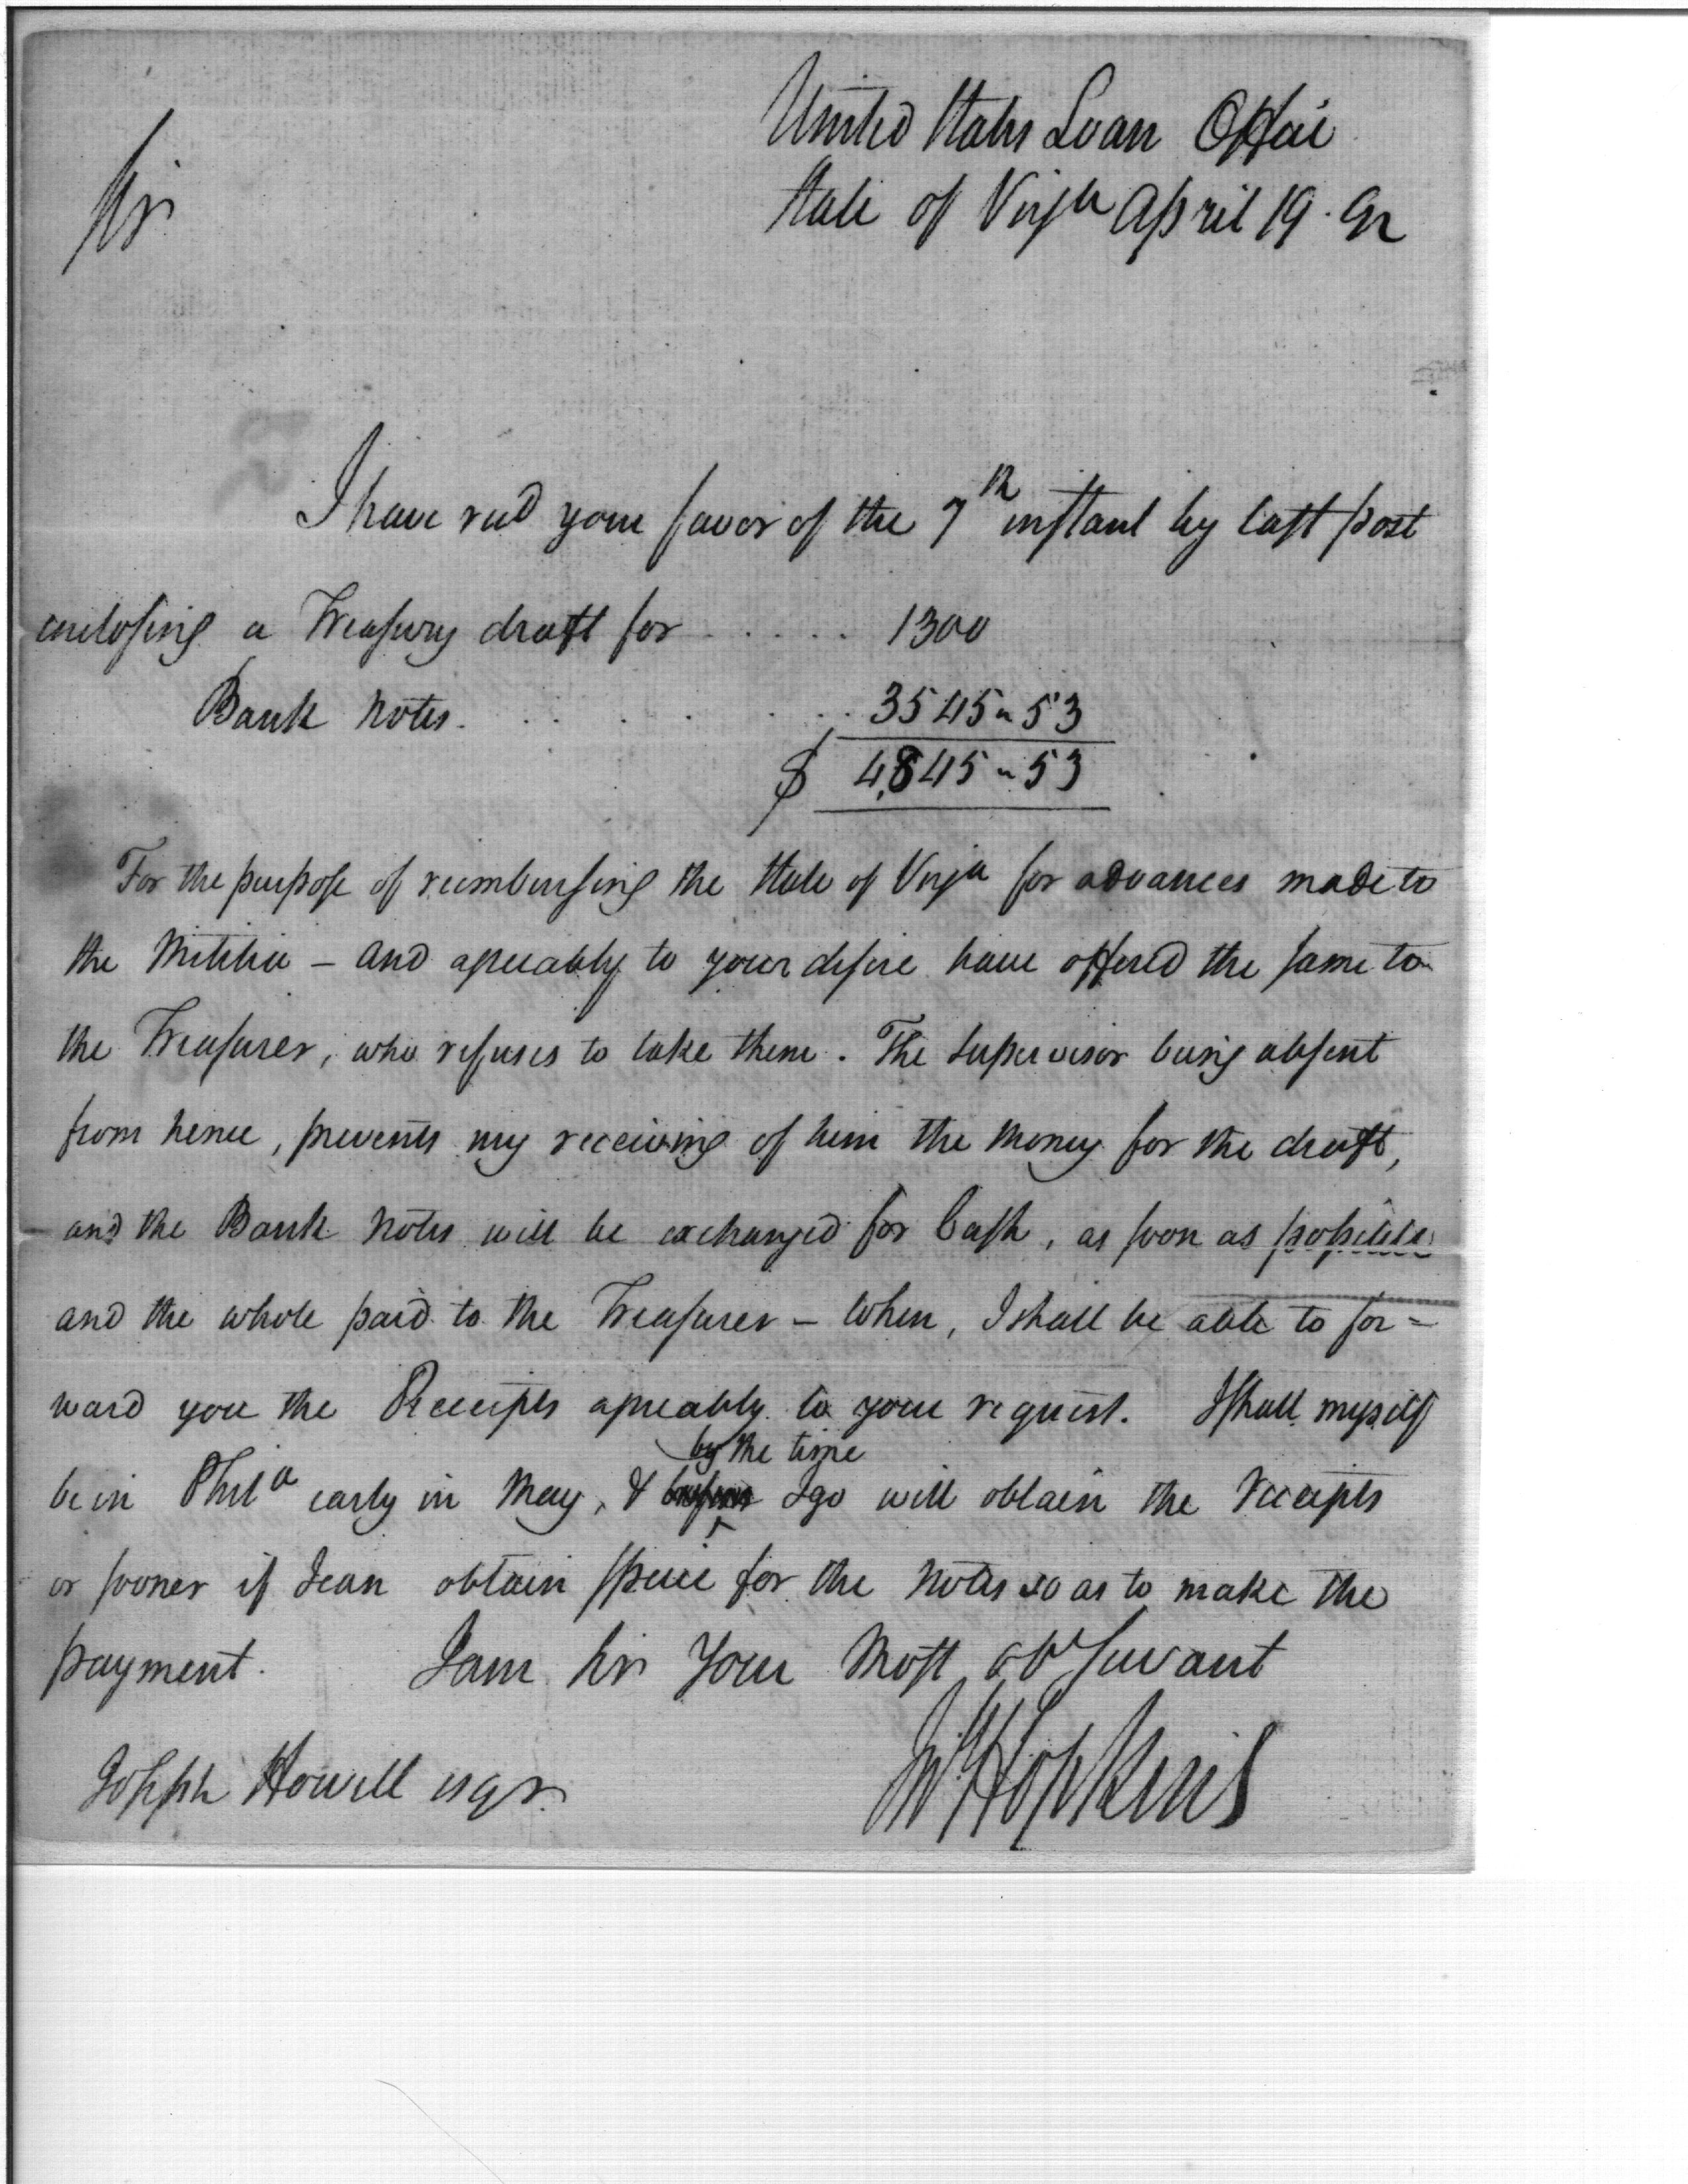 United States Loan Office
State of Virga April 19. 92
Sir
I have recd your favor of the 7th instant by last post
enclosing a Treasury draft for ..... 1300
Bank notes. ....... 3545 " 53
$ 4,845 " 53
For the purpose of reimbursing the State of Virga for advances made to
the Militia – and agreeably to your desire have offered the same to
the Treasurer, who refuses to take them. The Supervisor being absent
from hence, prevents my receiving of him the money for the draft,
and the Bank notes will be exchanged for Cash, as soon as possible
and the whole paid to the Treasurer – when, I shall be able to for=
ward you the Receipts agreeably to your request. I shall myself
by the time
be in Phila early in May, & before I go will obtain the receipts
or sooner if I can obtain specie for the notes so as to make the
payment. I am Sir Your Most ob Servant
Jn Hopkins
Joseph Howell esqr.